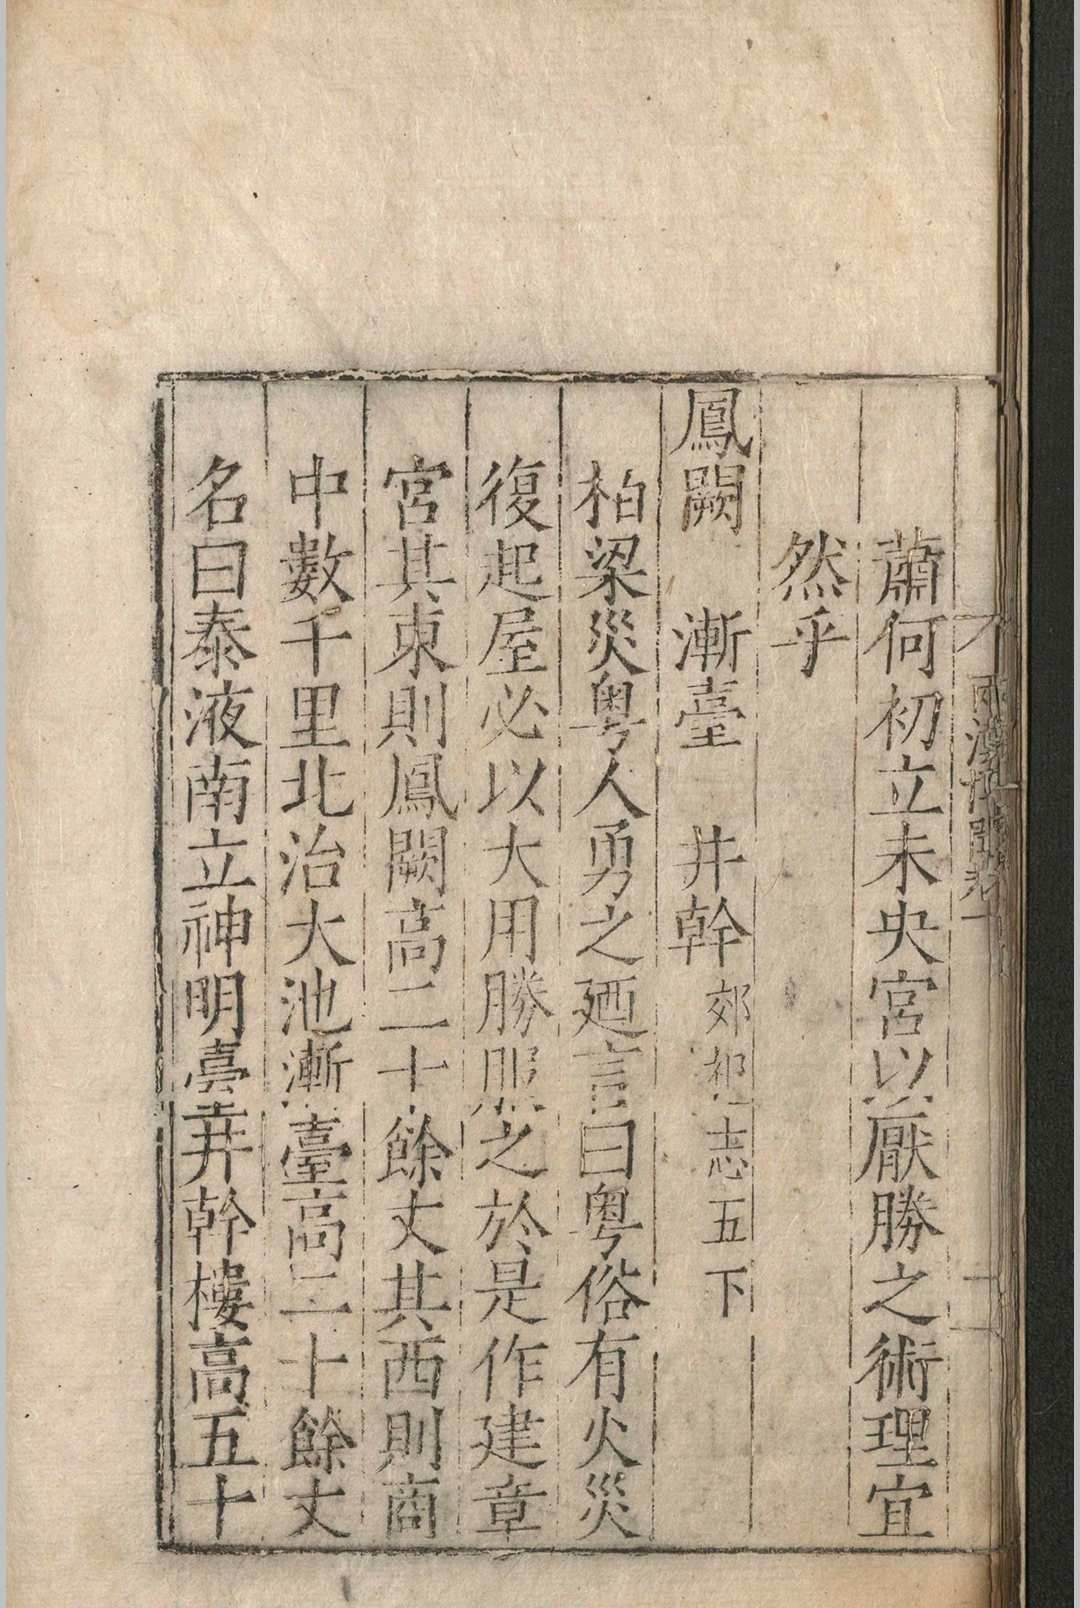 蕭何初立未央宮以厭勝之術理宜
然乎
鳳闕　漸臺　井幹郊祀志五下
柏梁災粵人勇之廼言曰粵俗有火災
復起屋必以大用勝服之於是作建章
宮其東則鳳闕高二十餘丈其西則商
中數千里北治大池漸臺高二十餘丈
名曰泰液南立神明臺井幹樓高五十